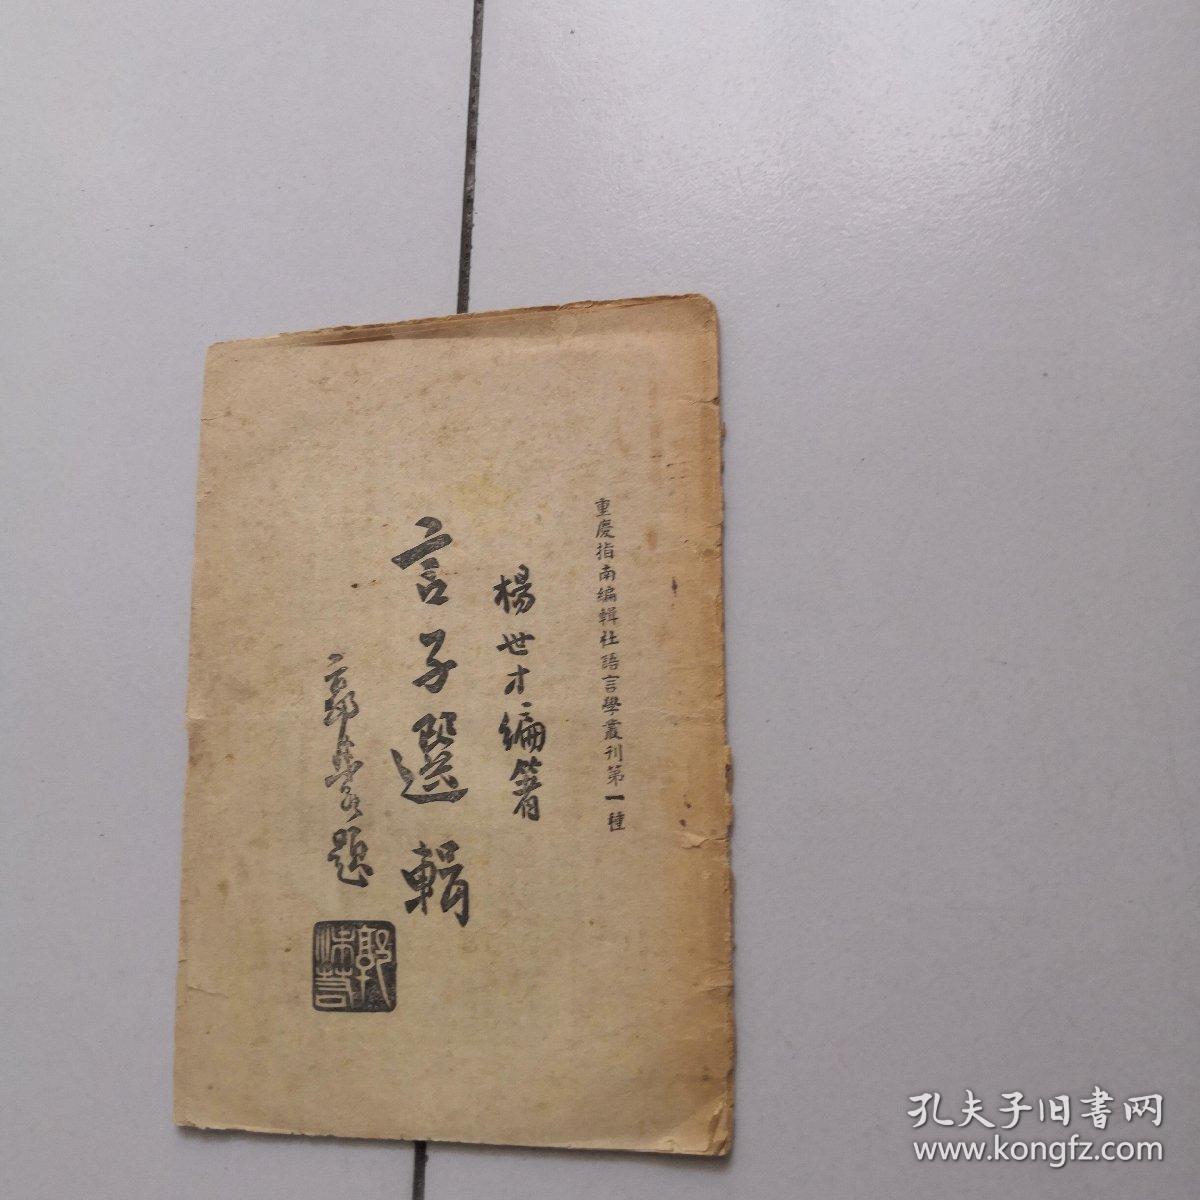 重慶指南編輯社語言學叢刊第一種
楊世才編著
言子選輯
郭沫若題
郭沫若
孔夫子旧書网
www.kongfz.com